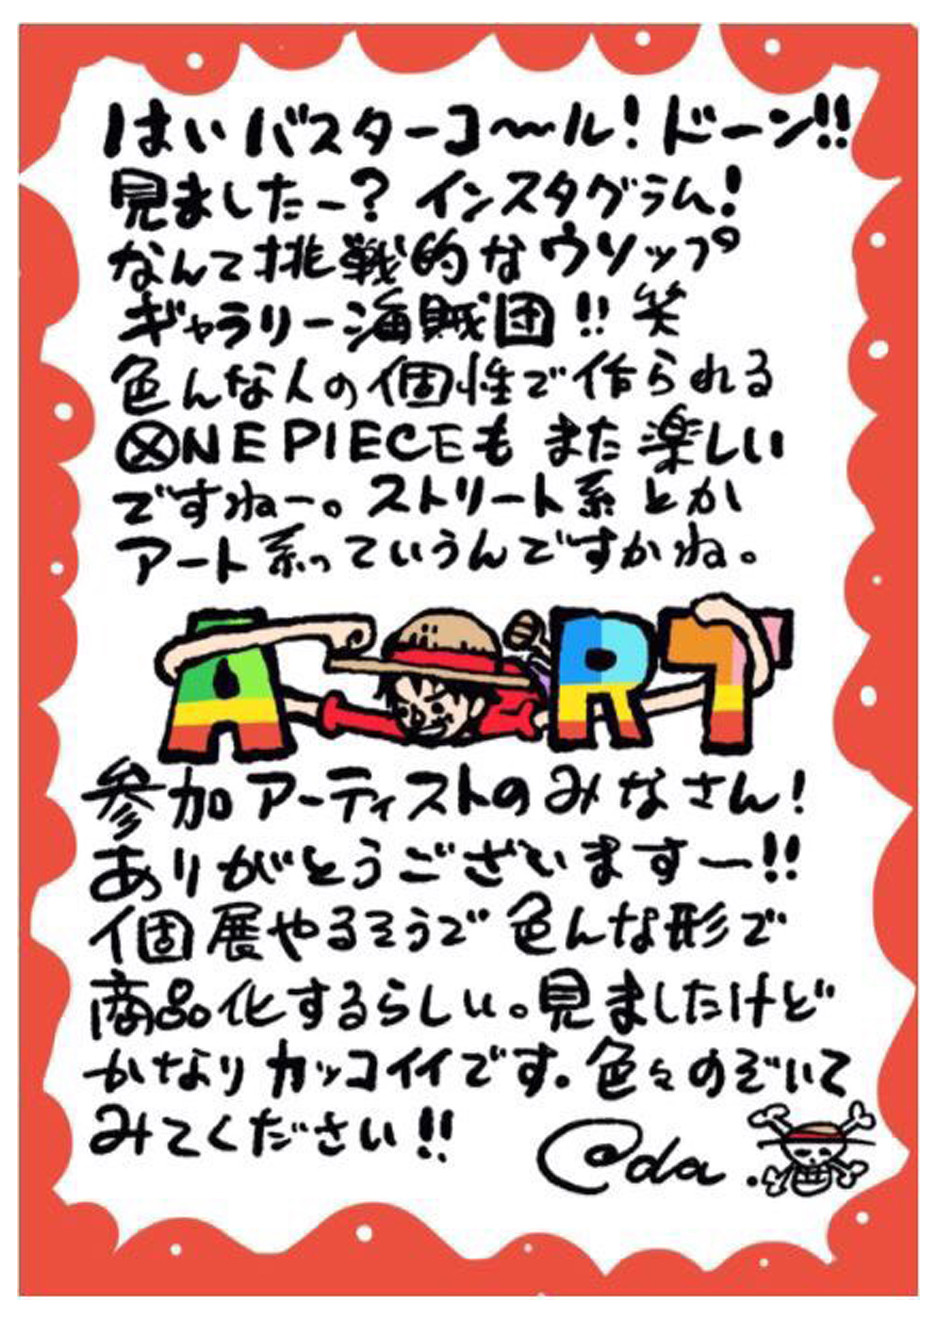 はいバスターコ〜ル!ドーン!!
見ましたー?インスタグラム!
なんて挑戦的なウソップ
ギャラリー海賊団!!笑
色んな人の個性で作られる
ONE PIECEもまた楽しい
ですねー。ストリート系とか
アート系っていうんですかね。
ART
参加アーティストのみなさん!
ありがとうございますー!!
個展やるそうで色んな形で
商品化するらしい。見ましたけど
かなりカッコイイです。色々のぞいて
みてください!!
@da.